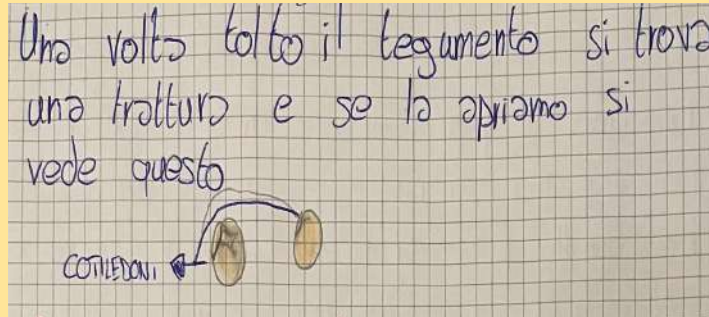 Una volta tolto il tegumento si trova
una frattura e se la apriamo si
vede questo
COTILEDONI